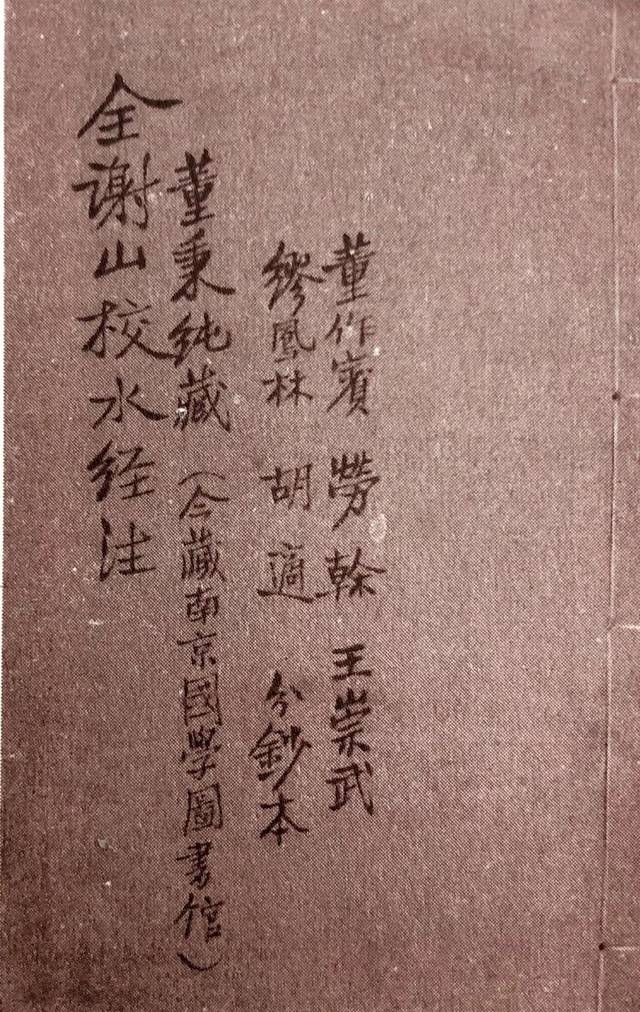 董作賓 勞榦 王崇武
繆鳳林 胡適 分鈔本
董秉纯藏（今藏南京國學圖書馆）
全谢山校水経注